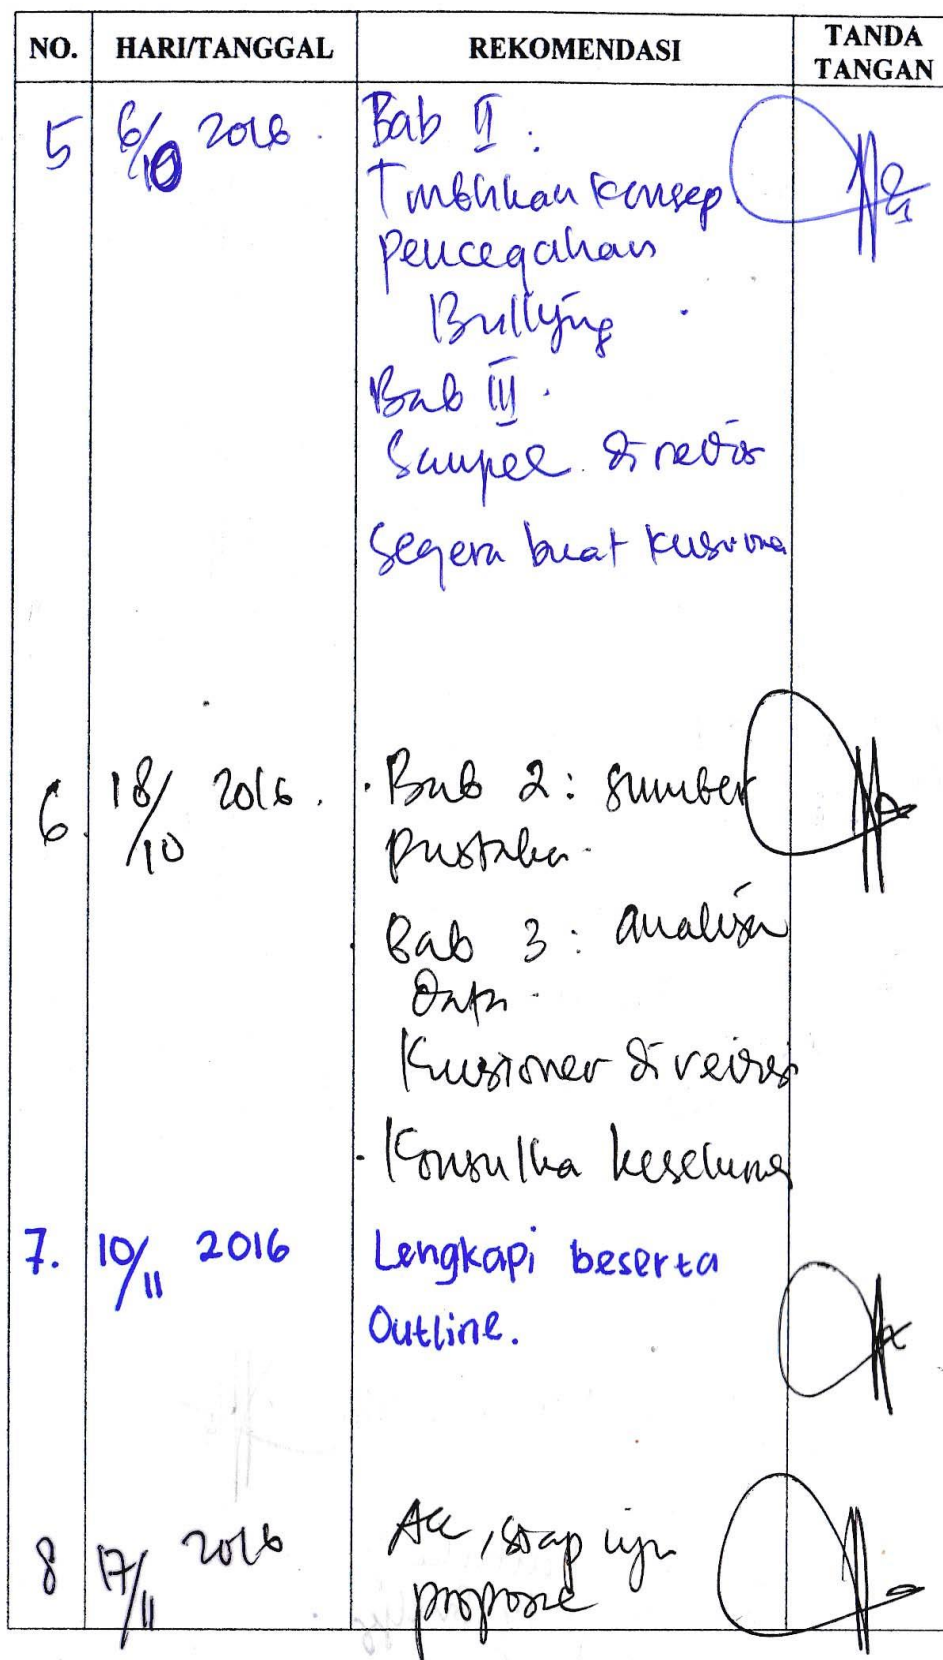 NO. HARI/TANGGAL REKOMENDASI TANDA TANGAN
5 6/10 2016. Bab II.
Tmbhkan konsep
pencegahan
Bullying.
Bab III.
Sampel direvisi
Segera buat
6. 18/10 2016. . Bab 2: sumber
pustaka.
Bab 3: analisa
Data.
Kusioner direvisi
. Konsulka
7. 10/11 2016 Lengkapi beserta
Outline.
8 17/11 2016 Acc, siap uji
proposal